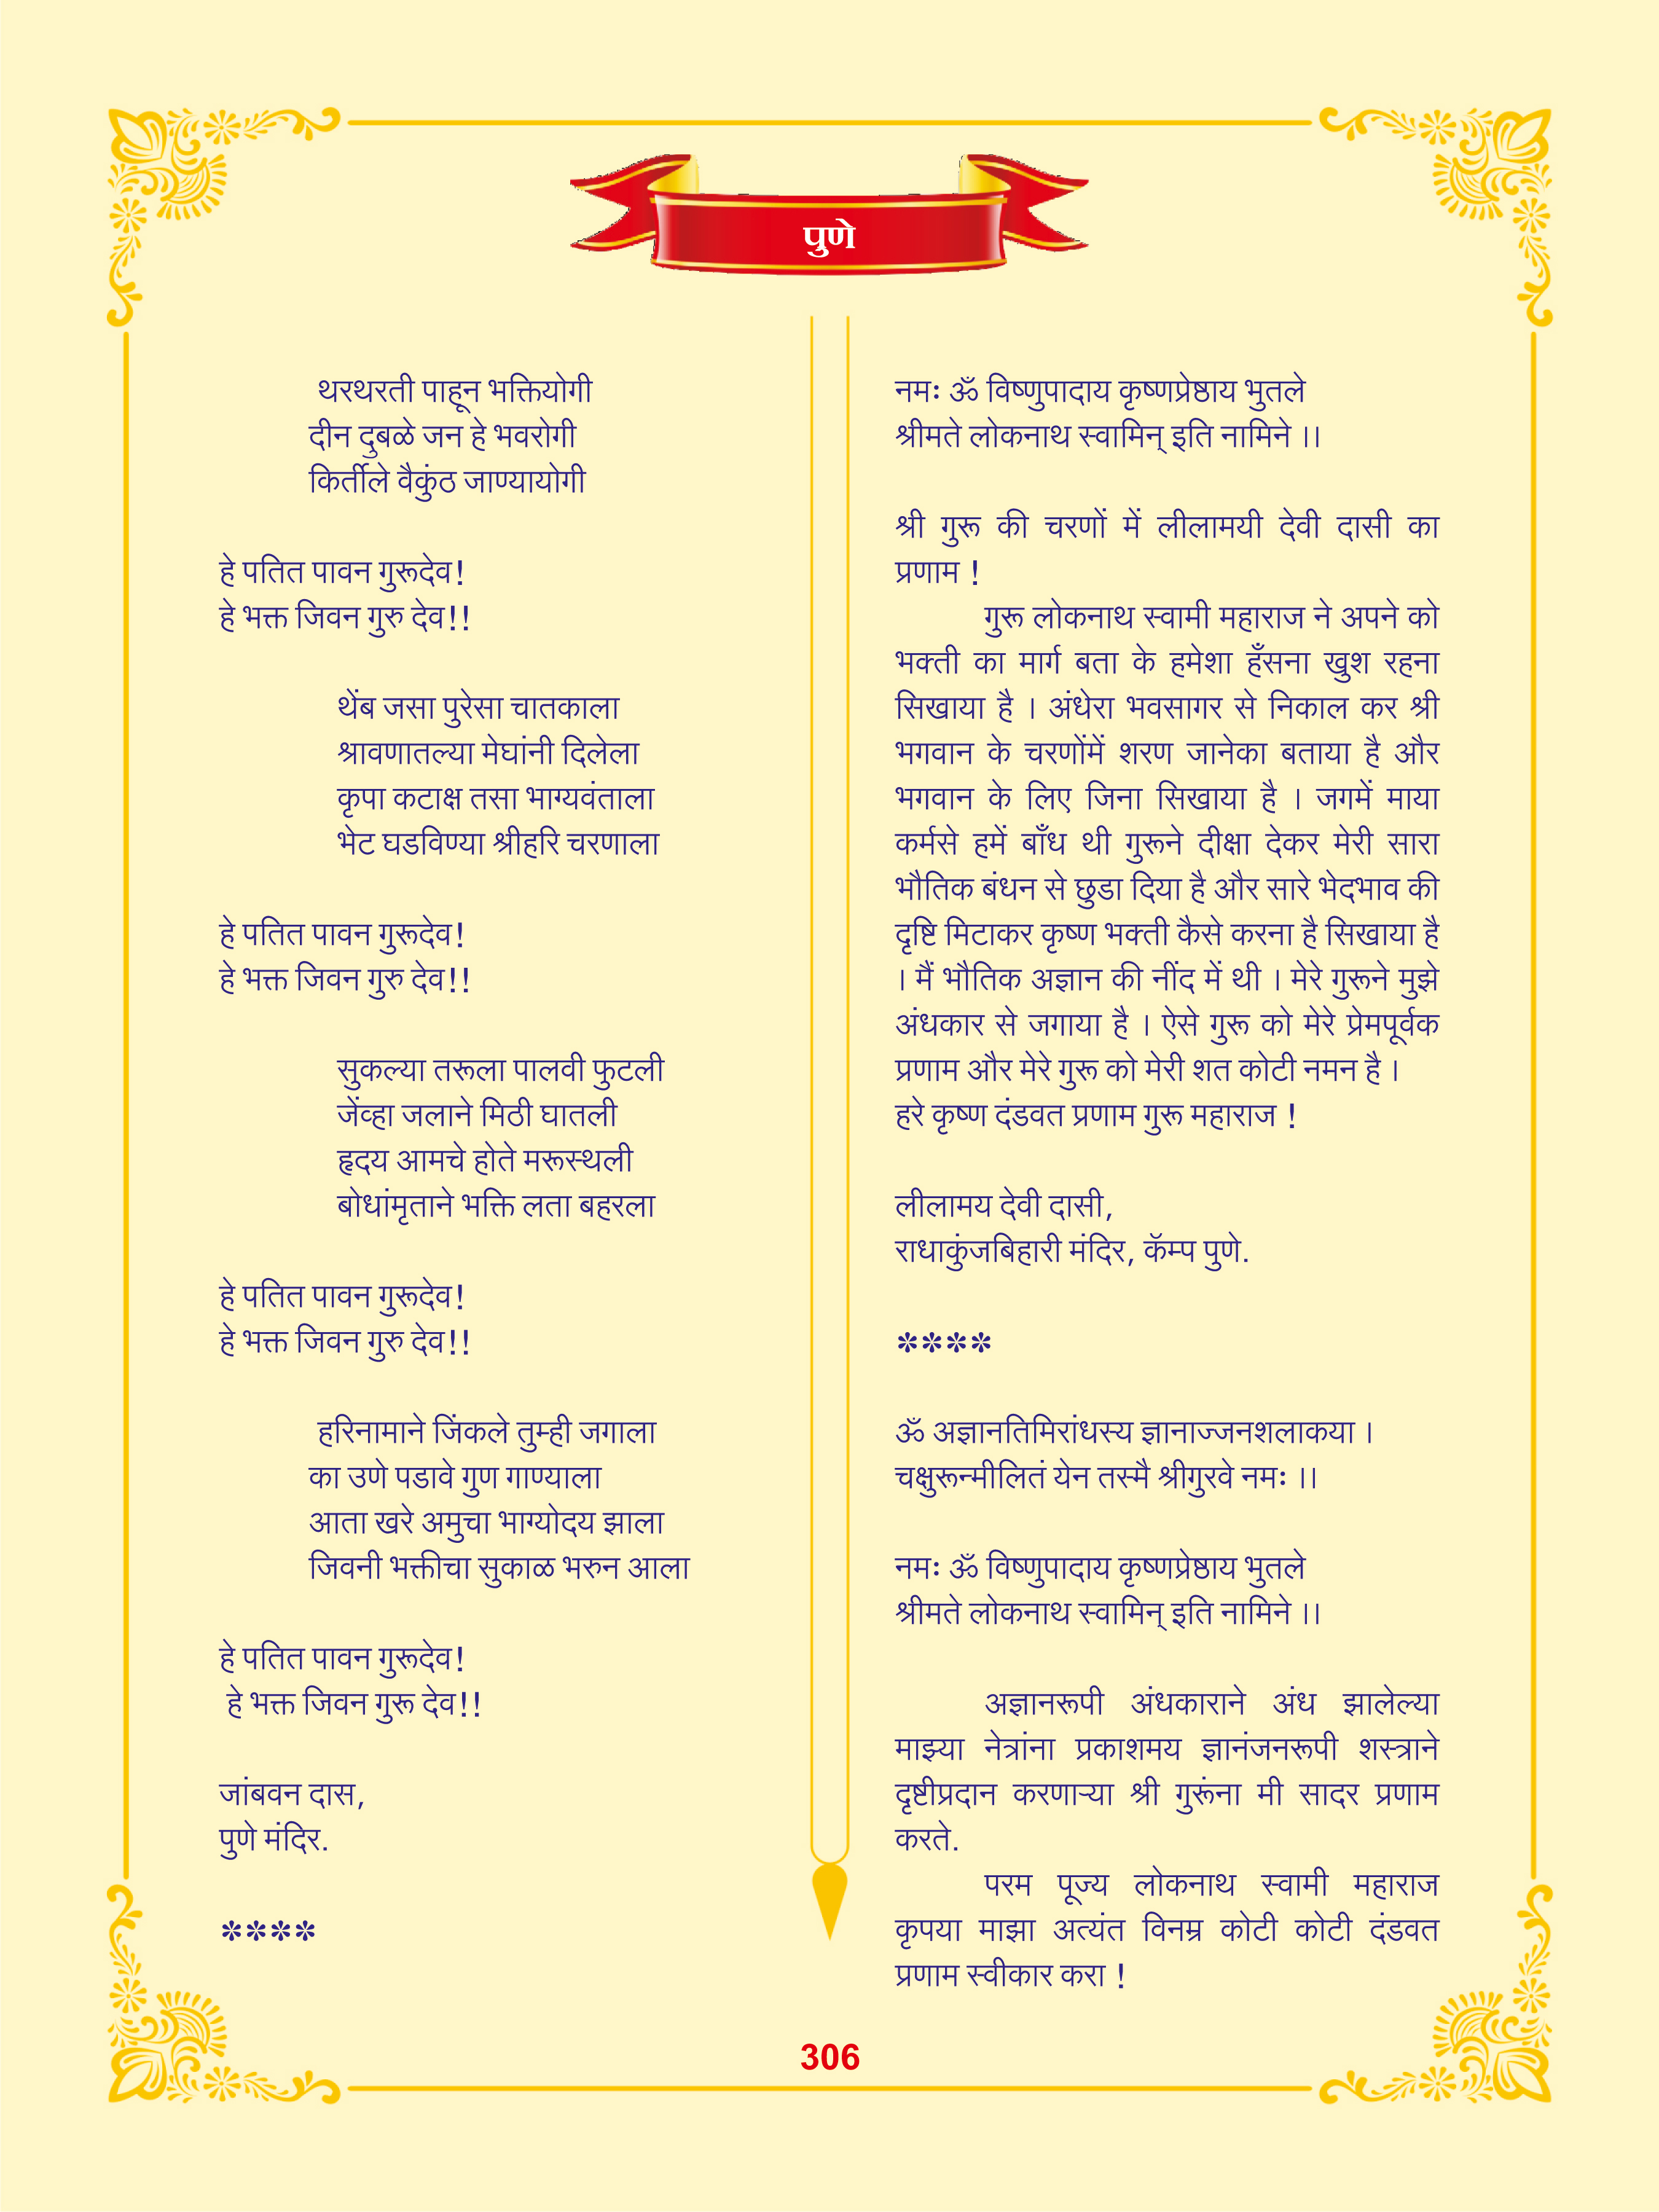 पुणे
थरथरती पाहून भक्तियोगी
दीन दुबळे जन हे भवरोगी
किर्तीले वैकुंठ जाण्यायोगी
हे पतित पावन गुरूदेव!
हे भक्त जिवन गुरु देव!!
थेंब जसा पुरेसा चातकाला
श्रावणातल्या मेघांनी दिलेला
कृपा कटाक्ष तसा भाग्यवंताला
भेट घडविण्या श्रीहरि चरणाला
हे पतित पावन गुरूदेव!
हे भक्त जिवन गुरु देव!!
सुकल्या तरूला पालवी फुटली
जेंव्हा जलाने मिठी घातली
हृदय आमचे होते मरूस्थली
बोधांमृताने भक्ति लता बहरला
हे पतित पावन गुरूदेव!
हे भक्त जिवन गुरु देव!!
हरिनामाने जिंकले तुम्ही जगाला
का उणे पडावे गुण गाण्याला
आता खरे अमुचा भाग्योदय झाला
जिवनी भक्तीचा सुकाळ भरुन आला
हे पतित पावन गुरूदेव!
हे भक्त जिवन गुरू देव!!
जांबवन दास,
पुणे मंदिर.
****
नमः ॐ विष्णुपादाय कृष्णप्रेष्ठाय भुतले
श्रीमते लोकनाथ स्वामिन् इति नामिने ।।
श्री गुरू की चरणों में लीलामयी देवी दासी का
प्रणाम !
गुरू लोकनाथ स्वामी महाराज ने अपने को
भक्ती का मार्ग बता के हमेशा हँसना खुश रहना
सिखाया है । अंधेरा भवसागर से निकाल कर श्री
भगवान के चरणोंमें शरण जानेका बताया है और
भगवान के लिए जिना सिखाया है । जगमें माया
कर्मसे हमें बाँध थी गुरूने दीक्षा देकर मेरी सारा
भौतिक बंधन से छुडा दिया है और सारे भेदभाव की
दृष्टि मिटाकर कृष्ण भक्ती कैसे करना है सिखाया है
। मैं भौतिक अज्ञान की नींद में थी । मेरे गुरूने मुझे
अंधकार से जगाया है । ऐसे गुरू को मेरे प्रेमपूर्वक
प्रणाम और मेरे गुरू को मेरी शत कोटी नमन है ।
हरे कृष्ण दंडवत प्रणाम गुरू महाराज !
लीलामय देवी दासी,
राधाकुंजबिहारी मंदिर, कॅम्प पुणे.
****
ॐ अज्ञानतिमिरांधस्य ज्ञानाज्जनशलाकया ।
चक्षुरून्मीलितं येन तस्मै श्रीगुरवे नमः ।।
नमः ॐ विष्णुपादाय कृष्णप्रेष्ठाय भुतले
श्रीमते लोकनाथ स्वामिन् इति नामिने ।।
अज्ञानरूपी अंधकाराने अंध झालेल्या
माझ्या नेत्रांना प्रकाशमय ज्ञानंजनरूपी शस्त्राने
दृष्टीप्रदान करणाऱ्या श्री गुरूंना मी सादर प्रणाम
करते.
परम पूज्य लोकनाथ स्वामी महाराज
कृपया माझा अत्यंत विनम्र कोटी कोटी दंडवत
प्रणाम स्वीकार करा !
306